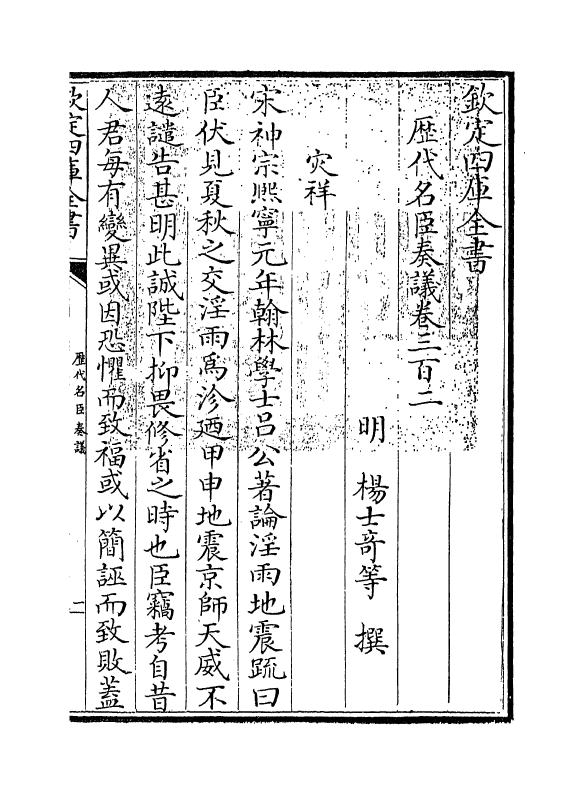 欽定四庫全書
歷代名臣奏議卷三百二
明　楊士竒等　撰
灾祥
宋神宗熈寧元年翰林學士吕公著論淫雨地震䟽曰
臣伏見夏秋之交淫雨爲沴廼甲申地震京師天威不
遠譴告甚明此誠陛下抑畏修省之時也臣竊考自昔
人君每有變異或因恐懼而致福或以簡誣而致敗葢
欽定四庫全書
歷代名臣奏議